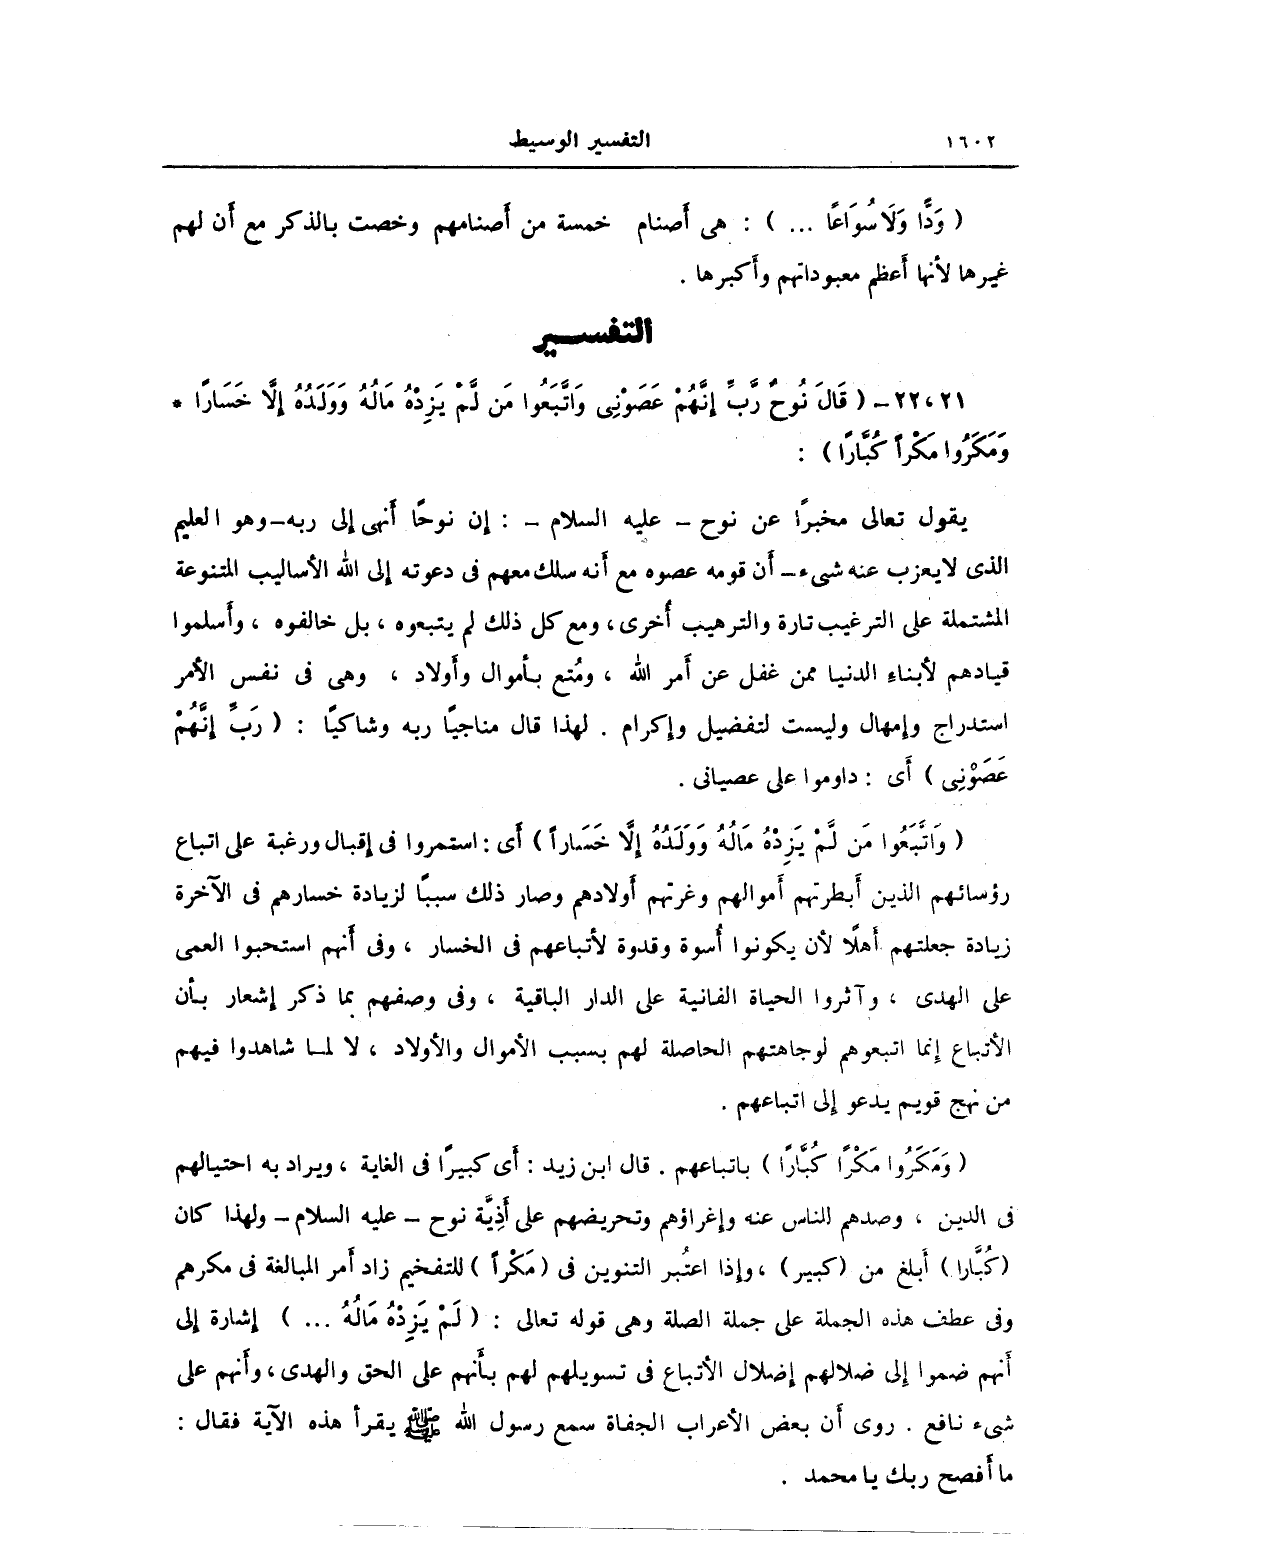 ١٦٠٢ التفسير الوسيط
( وَدًّا وَلَا سُوَاعًا ... ) : هى أَصنام خمسة من أَصنامهم وخصت بالذكر مع أَن لهم
غيرها لأنها أَعظم معبوداتهم وأَكبرها .
التفســـير
٢١ ، ٢٢ – ( قَالَ نُوحٌ رَّبِّ إِنَّهُمْ عَصَوْنِى وَاتَّبَعُوا مَن لَّمْ يَزِدْهُ مَالُهُ وَوَلَدُهُ إِلَّا خَسَارًا *
وَمَكَرُوا مَكْراً كُبَّارًا ) :
يقول تعالى مخبرًا عن نوح – عليه السلام – : إن نوحًا أَنهى إلى ربه – وهو العليم
الذى لايعزب عنه شىء – أَن قومه عصوه مع أَنه سلك معهم فى دعوته إلى الله الأساليب المتنوعة
المشتملة على الترغيب تارة والترهيب أُخرى ، ومع كل ذلك لم يتبعوه ، بل خالفوه ، وأَسلموا
قيادهم لأبناءِ الدنيا ممن غفل عن أمر الله ، ومُتع بأموال وأَولاد ، وهى فى نفس الأمر
استدراج وإمهال وليست لتفضيل وإكرام . لهذا قال مناجيًا ربه وشاكيًا : ( رَبِّ إِنَّهُمْ
عَصَوْنِى ) أَى : داوموا على عصيانى .
( وَاتَّبَعُوا مَن لَّمْ يَزِدْهُ مَالُهُ وَوَلَدُهُ إِلَّا خَسَاراً ) أَى : استمروا فى إقبال ورغبة على اتباع
رؤسائهم الذين أَبطرتهم أَموالهم وغرتهم أَولادهم وصار ذلك سببًا لزيادة خسارهم فى الآخرة
زيادة جعلتهم أَهلًا لأن يكونوا أُسوة وقدوة لأتباعهم فى الخسار ، وفى أَنهم استحبوا العمى
على الهدى ، وآثروا الحياة الفانية على الدار الباقية ، وفى وصفهم بما ذكر إشعار بأن
الأتباع إنما اتبعوهم لوجاهتهم الحاصلة لهم بسبب الأموال والأولاد ، لا لمـا شاهدوا فيهم
من نهج قويم يدعو إلى اتباعهم .
( وَمَكَرُوا مَكْرًا كُبَّارًا ) باتباعهم . قال ابن زيد : أَى كبيرًا فى الغاية ، ويراد به احتيالهم
فى الدين ، وصدهم للناس عنه وإغراؤهم وتحريضهم على أَذِيَّة نوح – عليه السلام – ولهذا كان
( كُبَّارا ) أَبلغ من ( كبير ) ، وإذا اعتُبر التنوين فى ( مَكْراً ) للتفخيم زاد أَمر المبالغة فى مكرهم
وفى عطف هذه الجملة على جملة الصلة وهى قوله تعالى : ( لَمْ يَزِدْهُ مَالُهُ ... ) إشارة إلى
أَنهم ضموا إلى ضلالهم إضلال الأتباع فى تسويلهم لهم بأَنهم على الحق والهدى ، وأَنهم على
شىء نافع . روى أَن بعض الأعراب الجفاة سمع رسول الله ﷺ يقرأ هذه الآية فقال :
ما أَفصح ربك يا محمد .